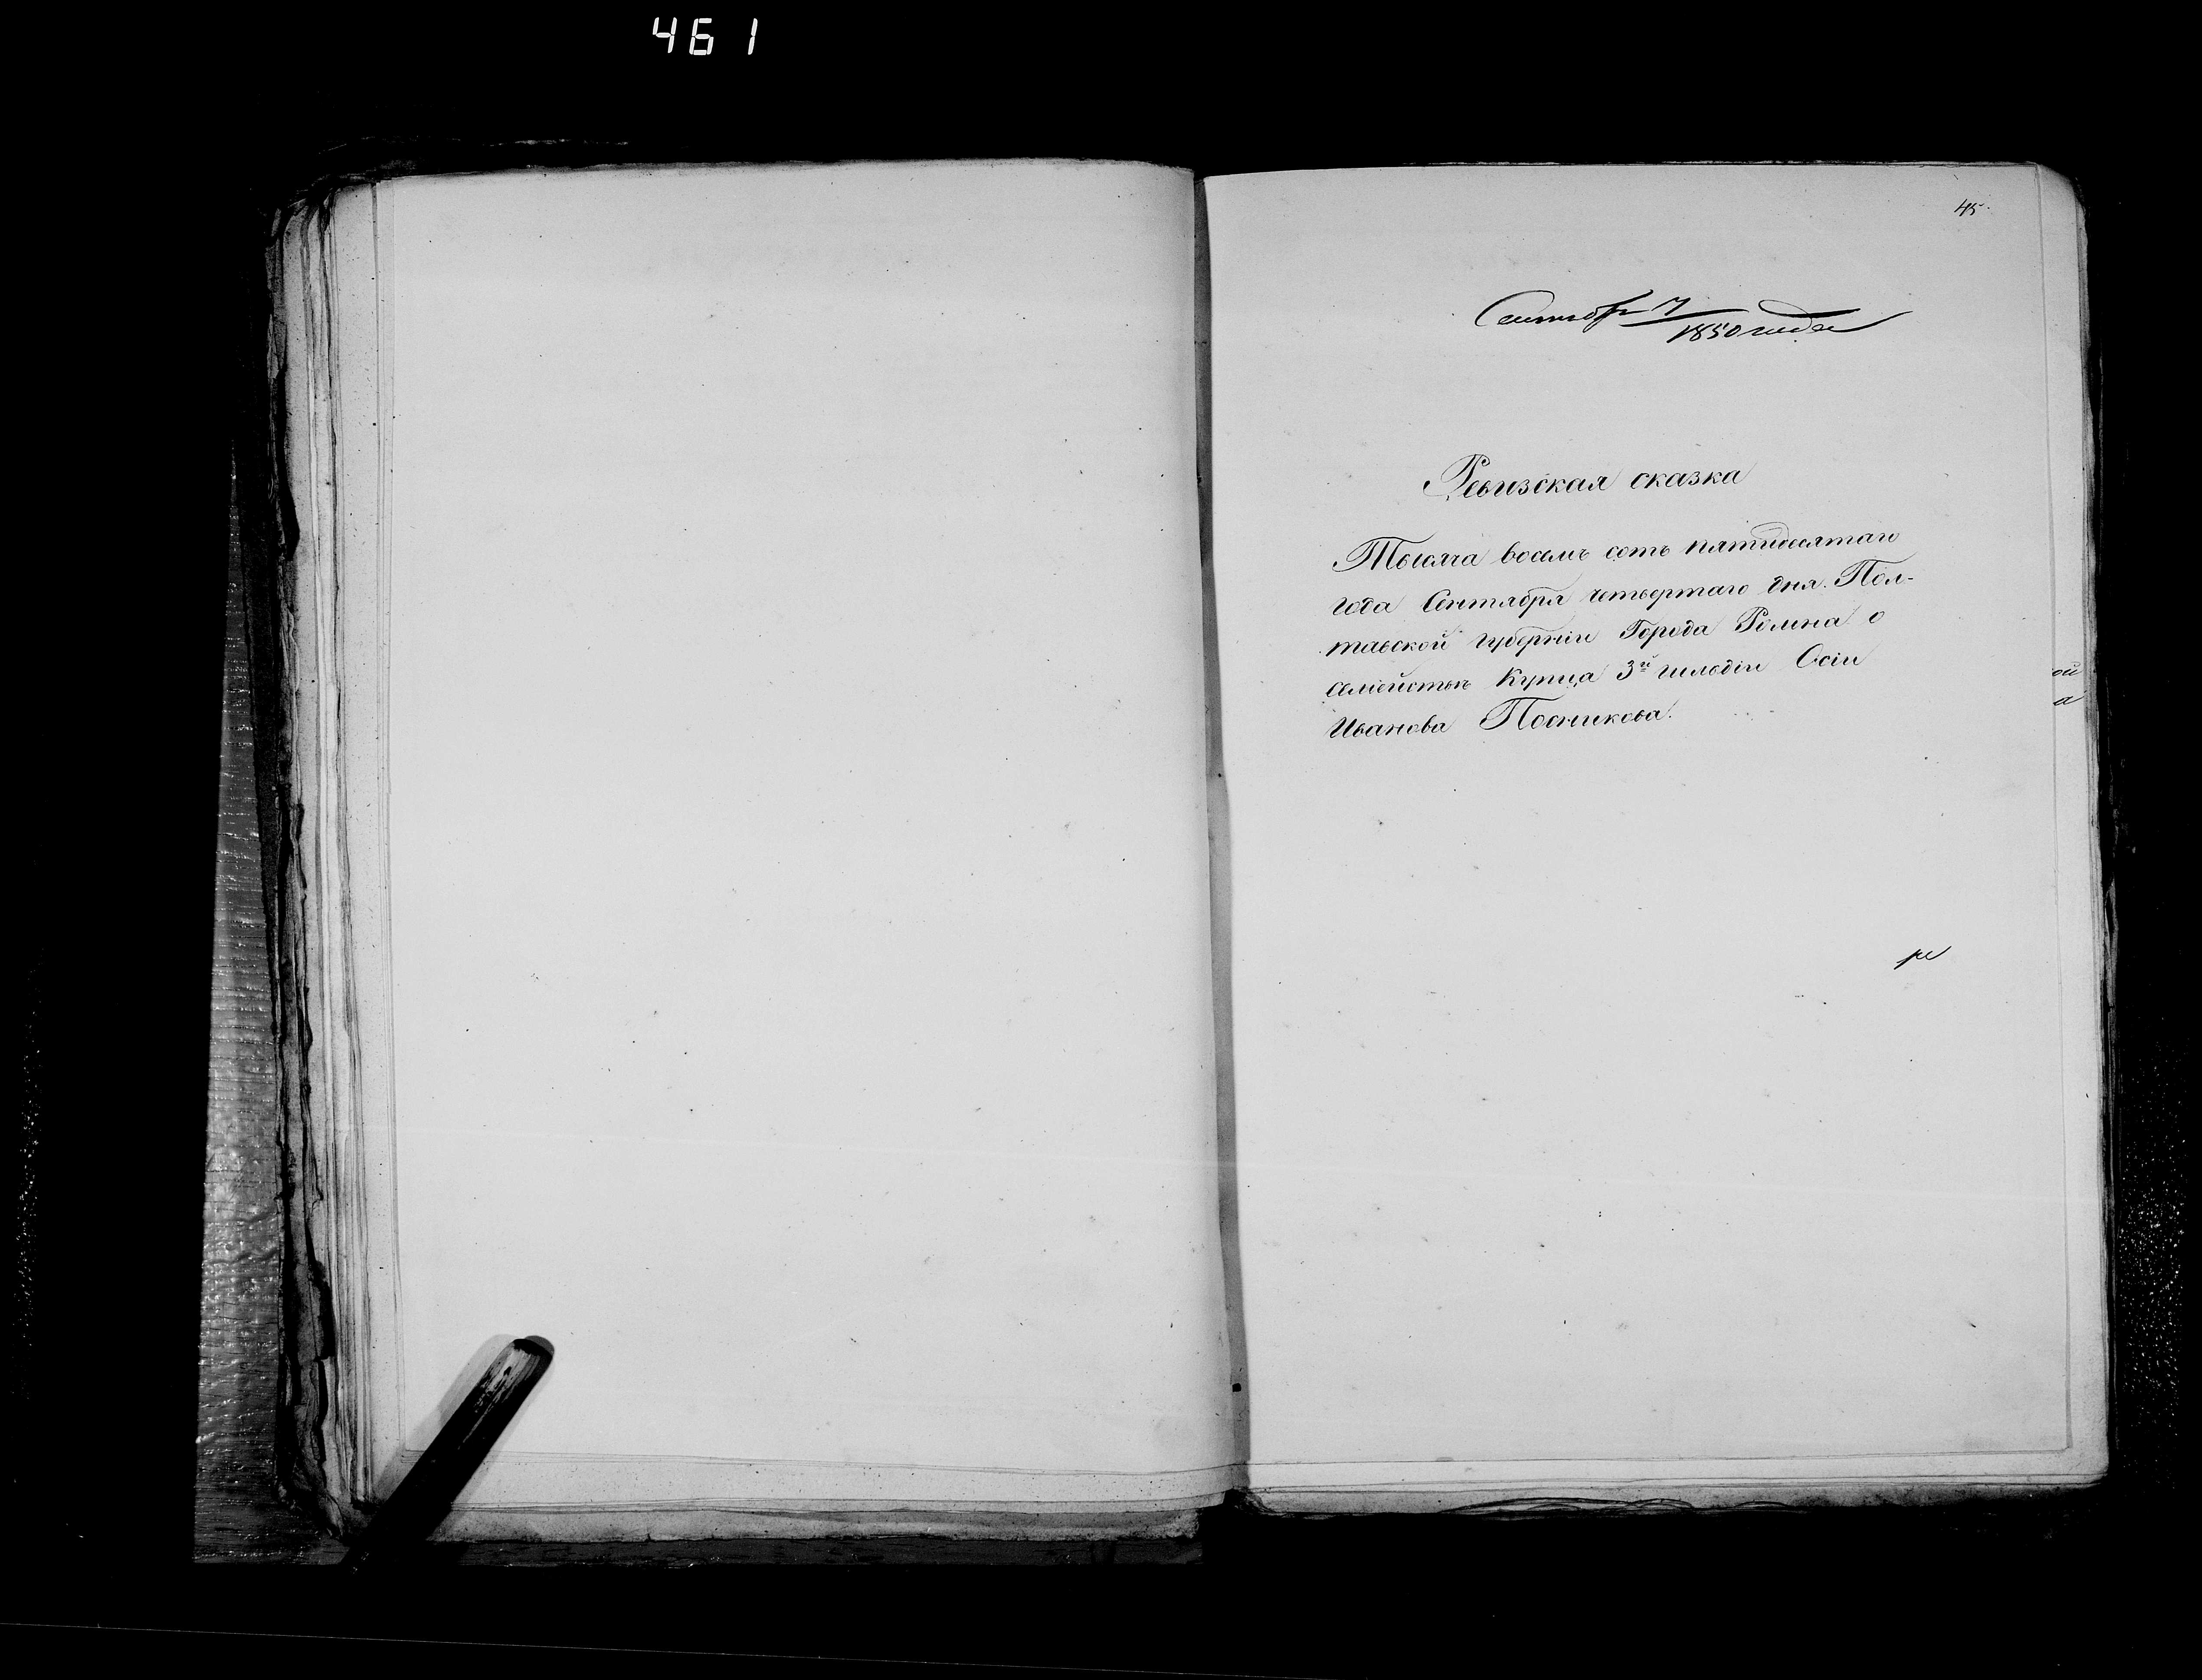 461
45.
Сентября 7
1850 года
Ревизская сказка
Тысяча восемь сотъ пятидесятаго
года Сентября четвертаго дня. Пол-
тавской губерніи Города Ромна о
семействѣ Купца 3й гильдіи Осіи
Иванова Посникова.
ой
а